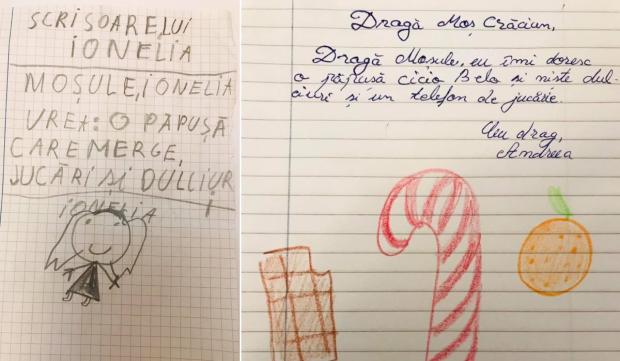 SCRISOARELUI
IONELIA
MOȘULE, IONELIA
VREA: O PĂPUȘĂ
CARE MERGE,
JUCĂRI ȘI DULLIȚUR
IONELIA
Dragă Moș Crăciun,
Dragă Moșule, eu îmi doresc
o păpușă cicio Belo și niste dul-
ciuri și un telefon de jucărie.
Cu drag,
Andreea